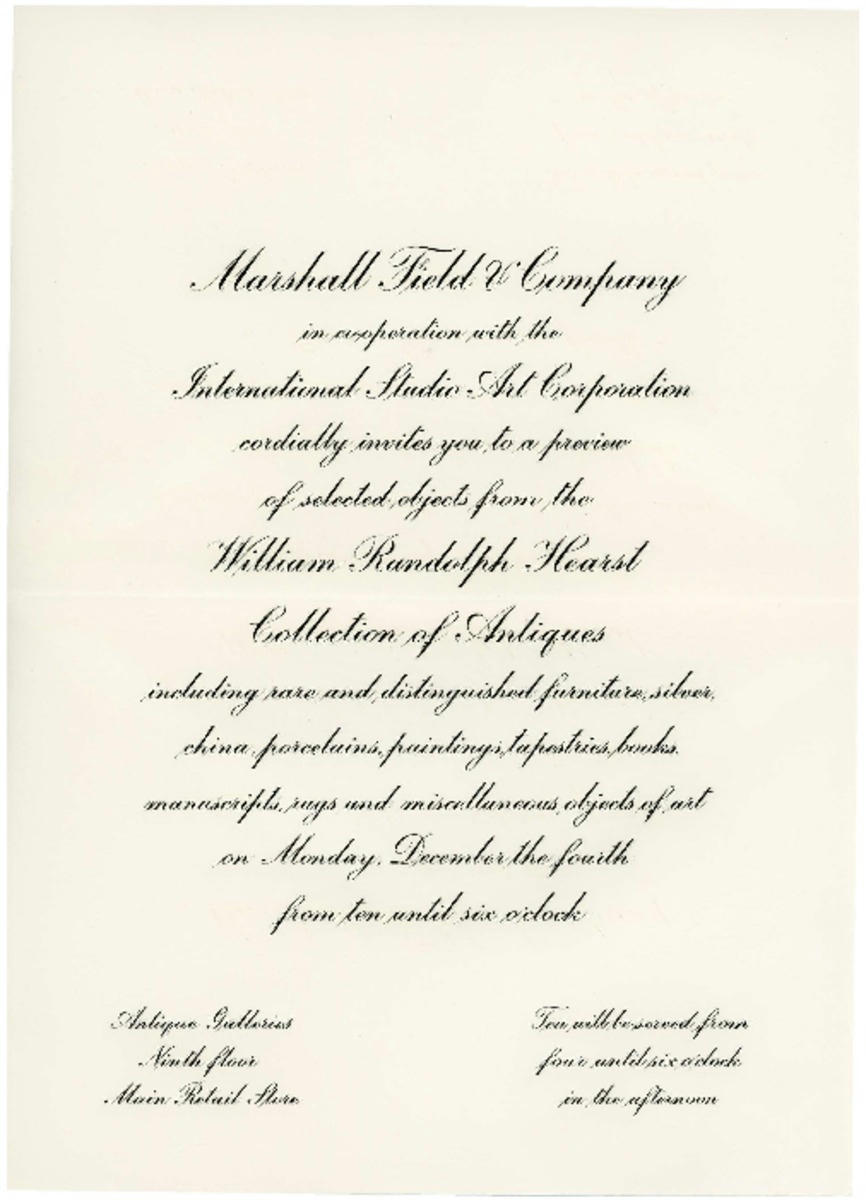 Marshall Field & Company
in co-operation with the
International Studio Art Corporation
cordially invites you to a preview
of selected objects from the
William Randolph Hearst
Collection of Antiques
including rare and distinguished furniture, silver,
china, porcelains, paintings, tapestries, books,
manuscripts, rugs and miscellaneous objects of art
on Monday, December the fourth
from ten until six o'clock
Antique Galleries
Ninth floor
Main Retail Store
Tea will be served from
four until six o'clock
in the afternoon